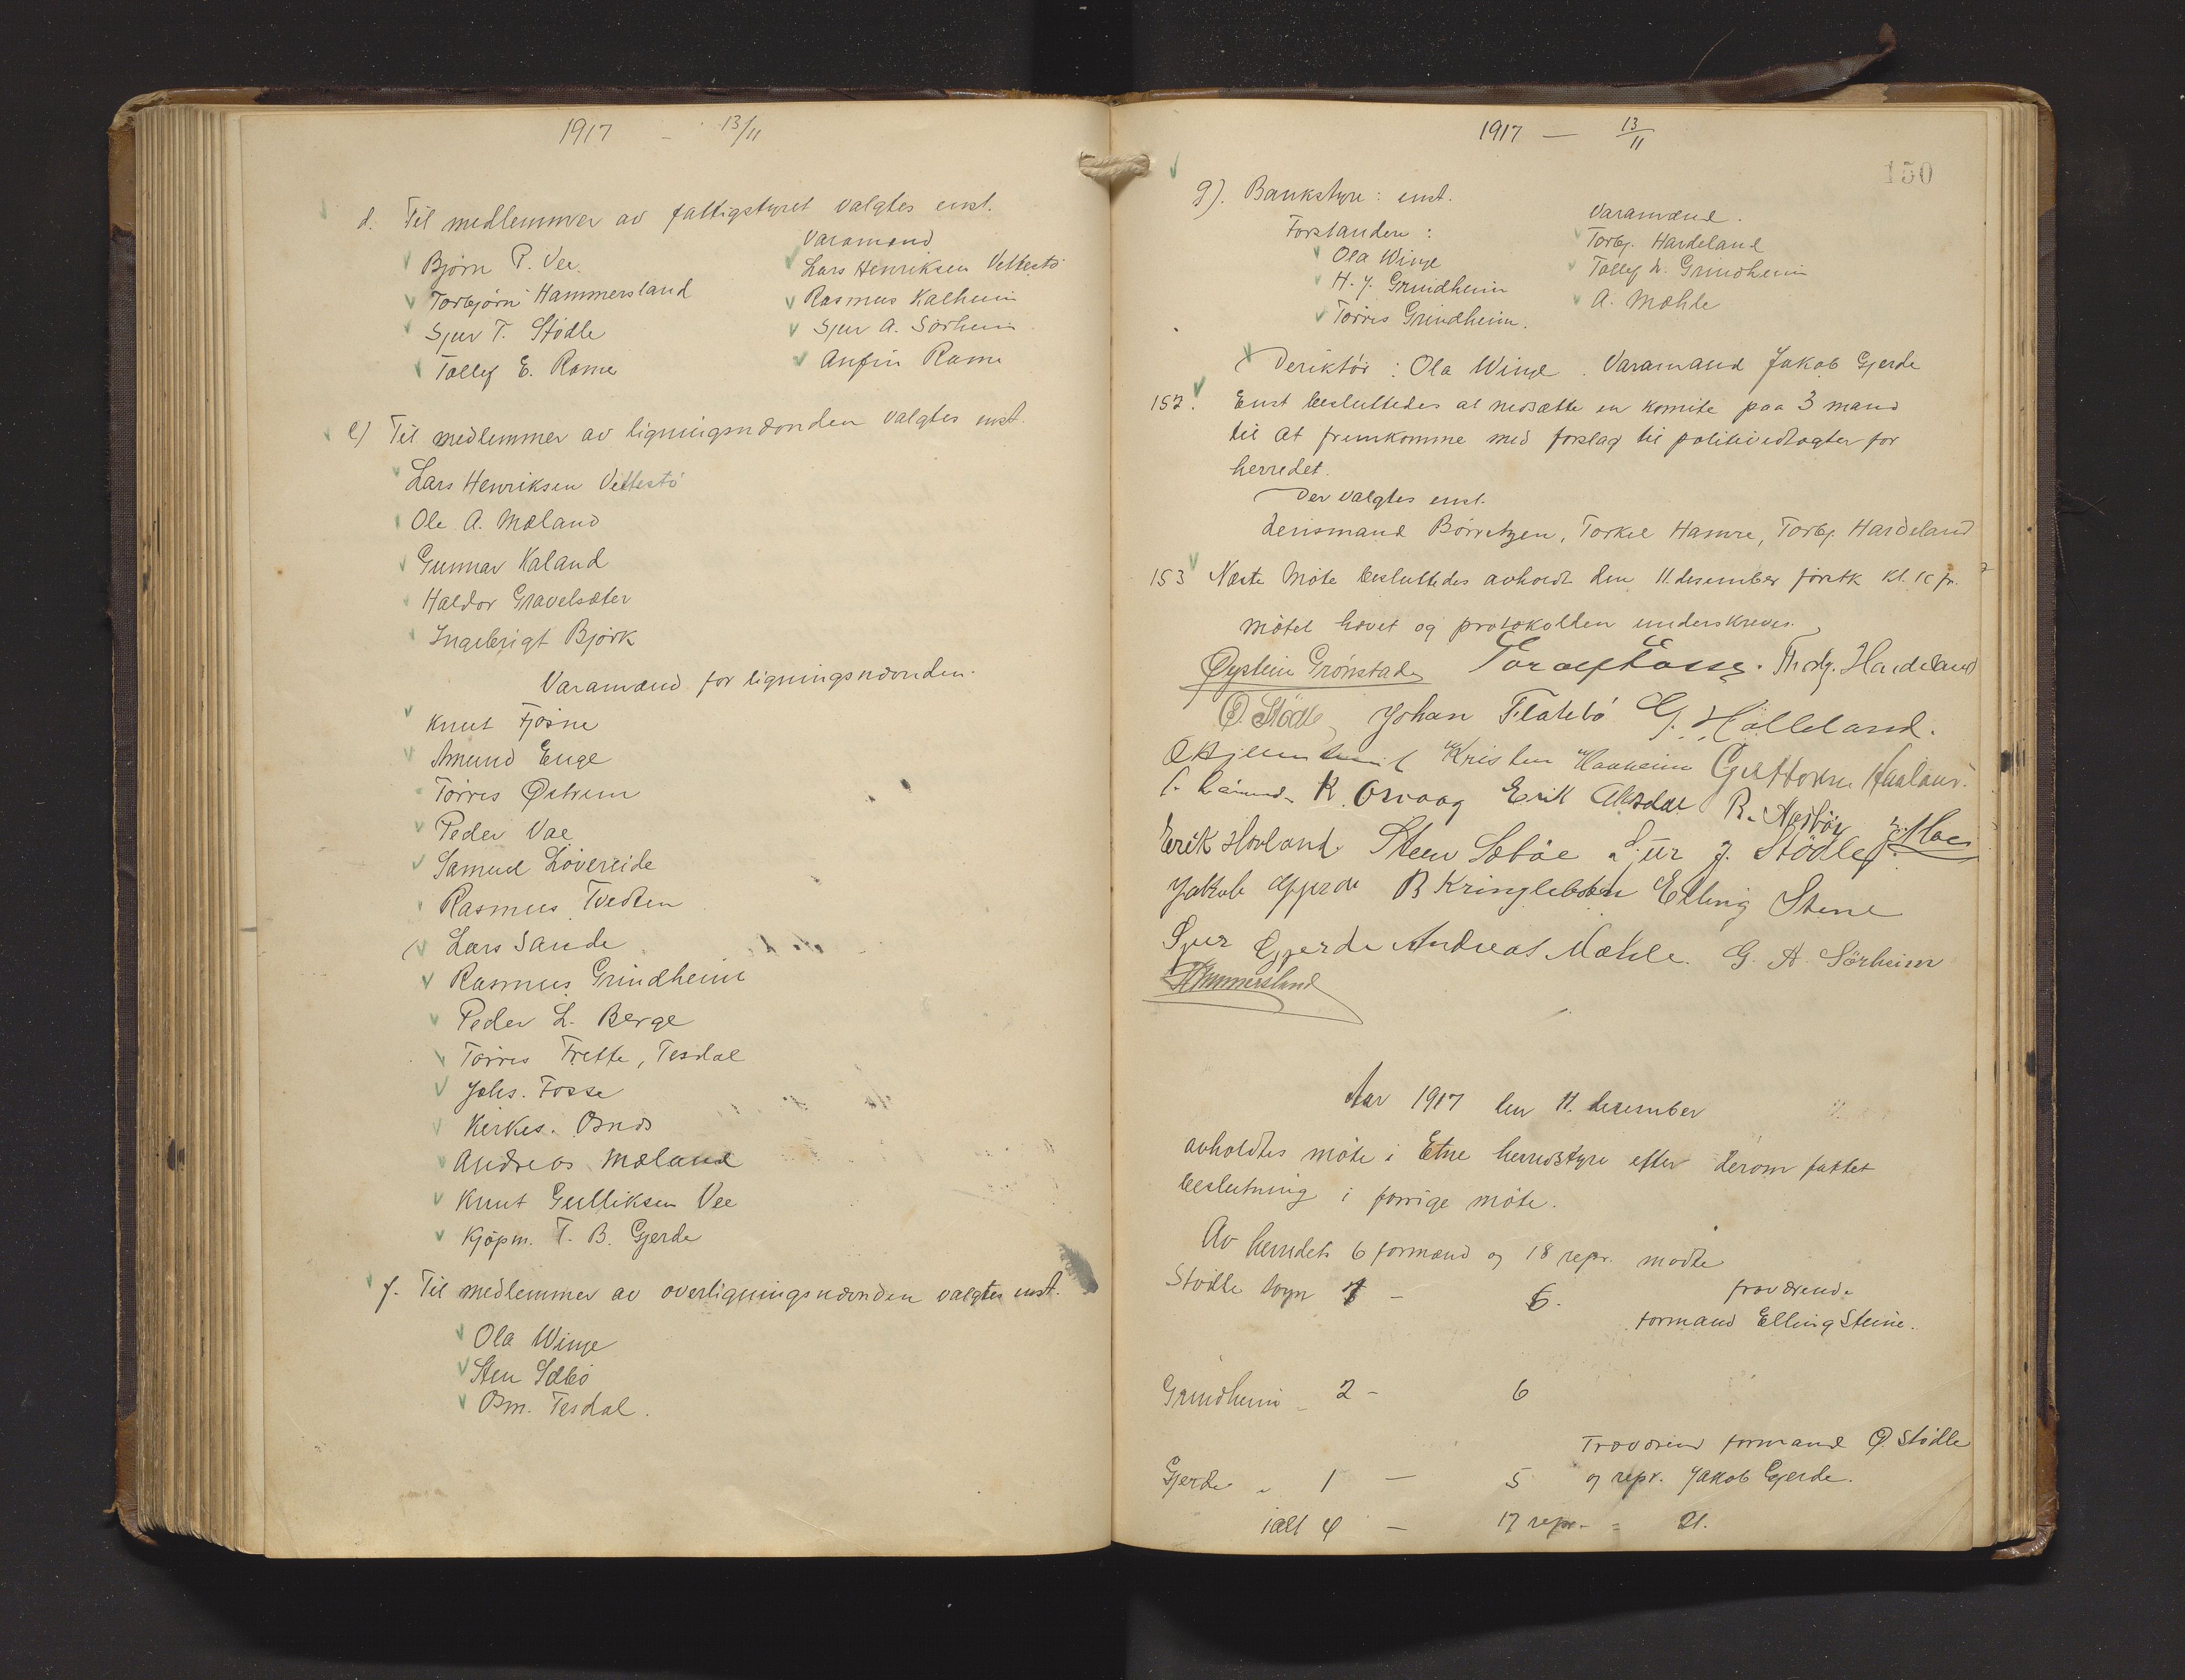 1917 - 13/11
d. Til medlemmer av fattigstyret valgtes enst.
Varamænd
Bjørn P. Vee. Lars Henriksen Vettestø
Torbjørn Hammersland Rasmus Kalheim
Sjur T. Stødle Sjur A. Sørheim
Tollef E. Rame Anfin Rame
e) Til medlemmer av ligningsnævnden valgtes enst.
Lars Henriksen Vettestø
Ole A. Mæland
Gunnar Kaland
Haldor Gravelsæter
Ingebrigt Bjørk
Varamænd for ligningsnævnden.
Knut Fjøsne
Amund Enge
Tørres Østrem
Peder Vae
Samuel Løvereide
Rasmus Tvedten
Lars Sande
Rasmus Grindheim
Peder L. Berge
Tørres Frette, Tesdal
Johs. Fosse
Kirkes. Osnes
Andreas Mæland
Knut Gulliksen Vee
Kjøpm. T. B. Gjerde
f. Til medlemmer av overligningsnævnden valgtes enst.
Ola Winje
Sten Sæbø
Osm. Tesdal.
1917 — 13/11
150
g). Bankstyre: enst.
Forstandere: Varamænd.
Ola Winje Torbj. Hardeland
H. J. Grindheim Tollef L. Grindheim
Tørres Grindheim. A. Mæhle
Deriktør: Ola Winje. Varamand Jakob Gjerde
152. Enst besluttedes at nedsætte en komite paa 3 mand
til at fremkomme med forslag til politivedtægter for
herredet.
Der valgtes enst.
Lensmand Børretzen, Torkel Hamre, Torbj. Hardeland
153 Næste møte besluttedes avholdt den 11. desember førstk kl. 10 fr.
Møtet hævet og protokollen underskreves.
Øystein Grønstad Toralf Fosse. Thorbj. Hardeland
O. Stødle Johan Flatebø G. Hølleland.
Kristen Haaheim Guttorm Hualand.
K. Osvaag Erik Aksdal R. Næsbøx J. Moe
Erik Hovland Sten Sæbøe Sjur J. Stødle
Jakob Gjerde B Kringlebotn Elling Stene
Sjur Gjerde Andreas Mæhle. G. A. Sørheim
Hammersland
Aar 1917 den 11. desember
avholdtes møte i Etne herredstyre efter derom fattet
beslutning i forrige møte.
Av herredets 6 formænd og 18 repr. møtte
Stødle sogn 1 - 6. fraværende
formand Elling Steine.
Grindheim - 2 - 6
Fraværend formand O. Stødle
Gjerde " 1 — 5 og repr. Jakob Gjerde.
ialt 4 — 17 repr. = 21.